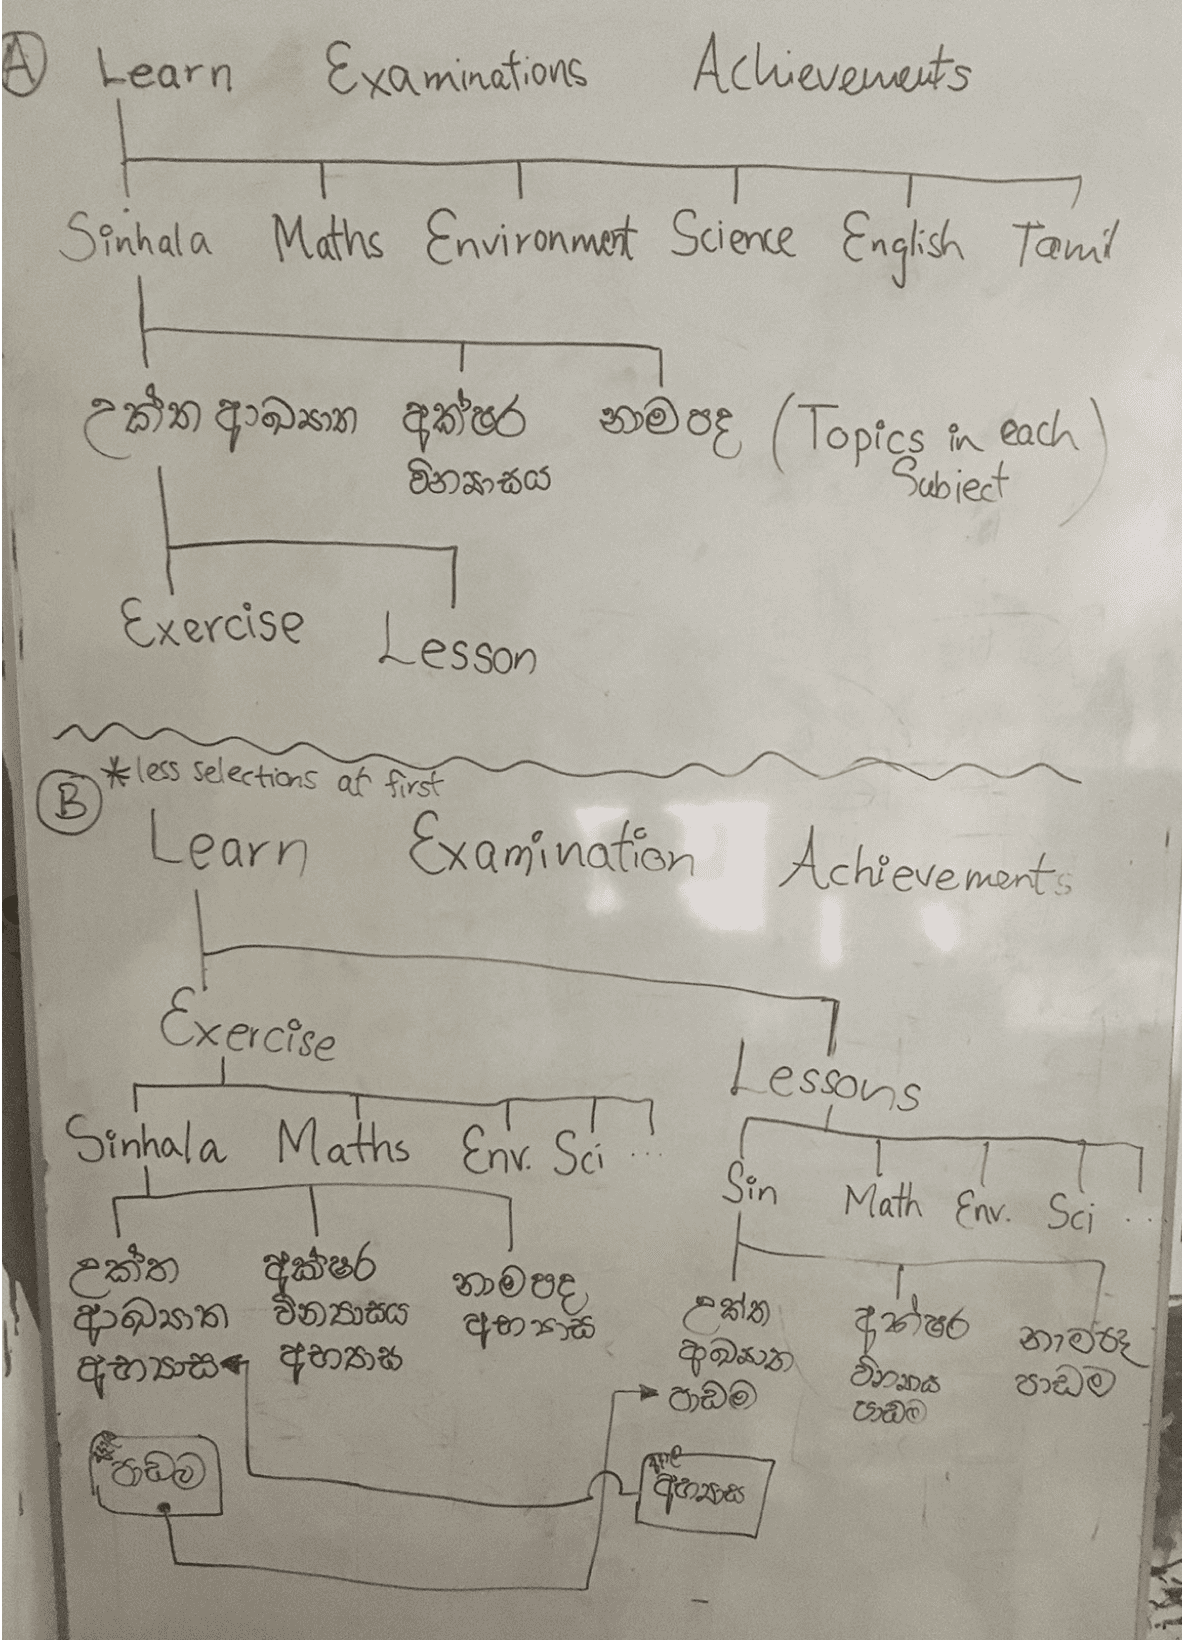 A Learn Examinations Achievements
Sinhala Maths Environment Science English Tamil
උක්ත ආඛ්‍යාත අක්ෂර නාමපද (Topics in each
වින්‍යාසය Subject)
Exercise Lesson
*less selections at first
B Learn Examination Achievements
Exercise
Lessons
Sinhala Maths Env. Sci ...
Sin Math Env. Sci ...
උක්ත අක්ෂර නාමපද
ආඛ්‍යාත වින්‍යාසය අභ්‍යාස
අභ්‍යාස අභ්‍යාස
උක්ත අක්ෂර නාමපද
ආඛ්‍යාත පාඩම
පාඩම පාඩම
පාඩම
අභ්‍යාස